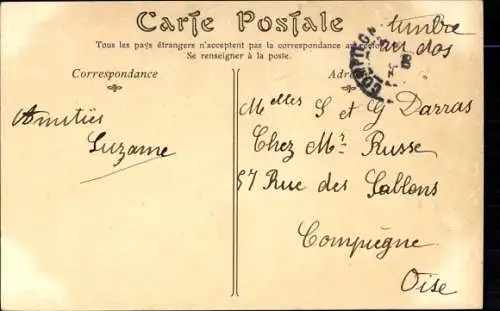 Carte Postale
timbre
au dos
Tous les pays étrangers n'acceptent pas la correspondance au
Se renseigner à la poste.
Correspondance
COMPIEGN
Amitiés
Suzanne
Melles S et G Darras
Chez Mr Russe
57 Rue des Sablons
Compiègne
Oise